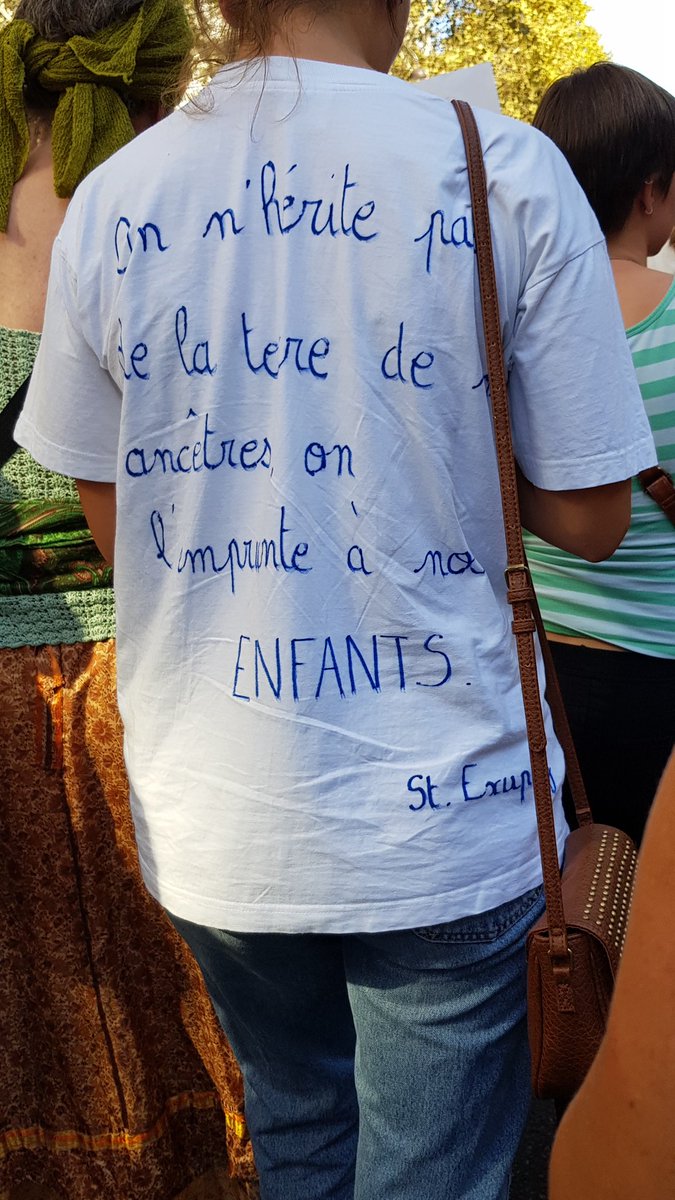 On n'hérite pa
de la tere de
ancêtres, on
l'emprunte à nos
ENFANTS.
St. Exup